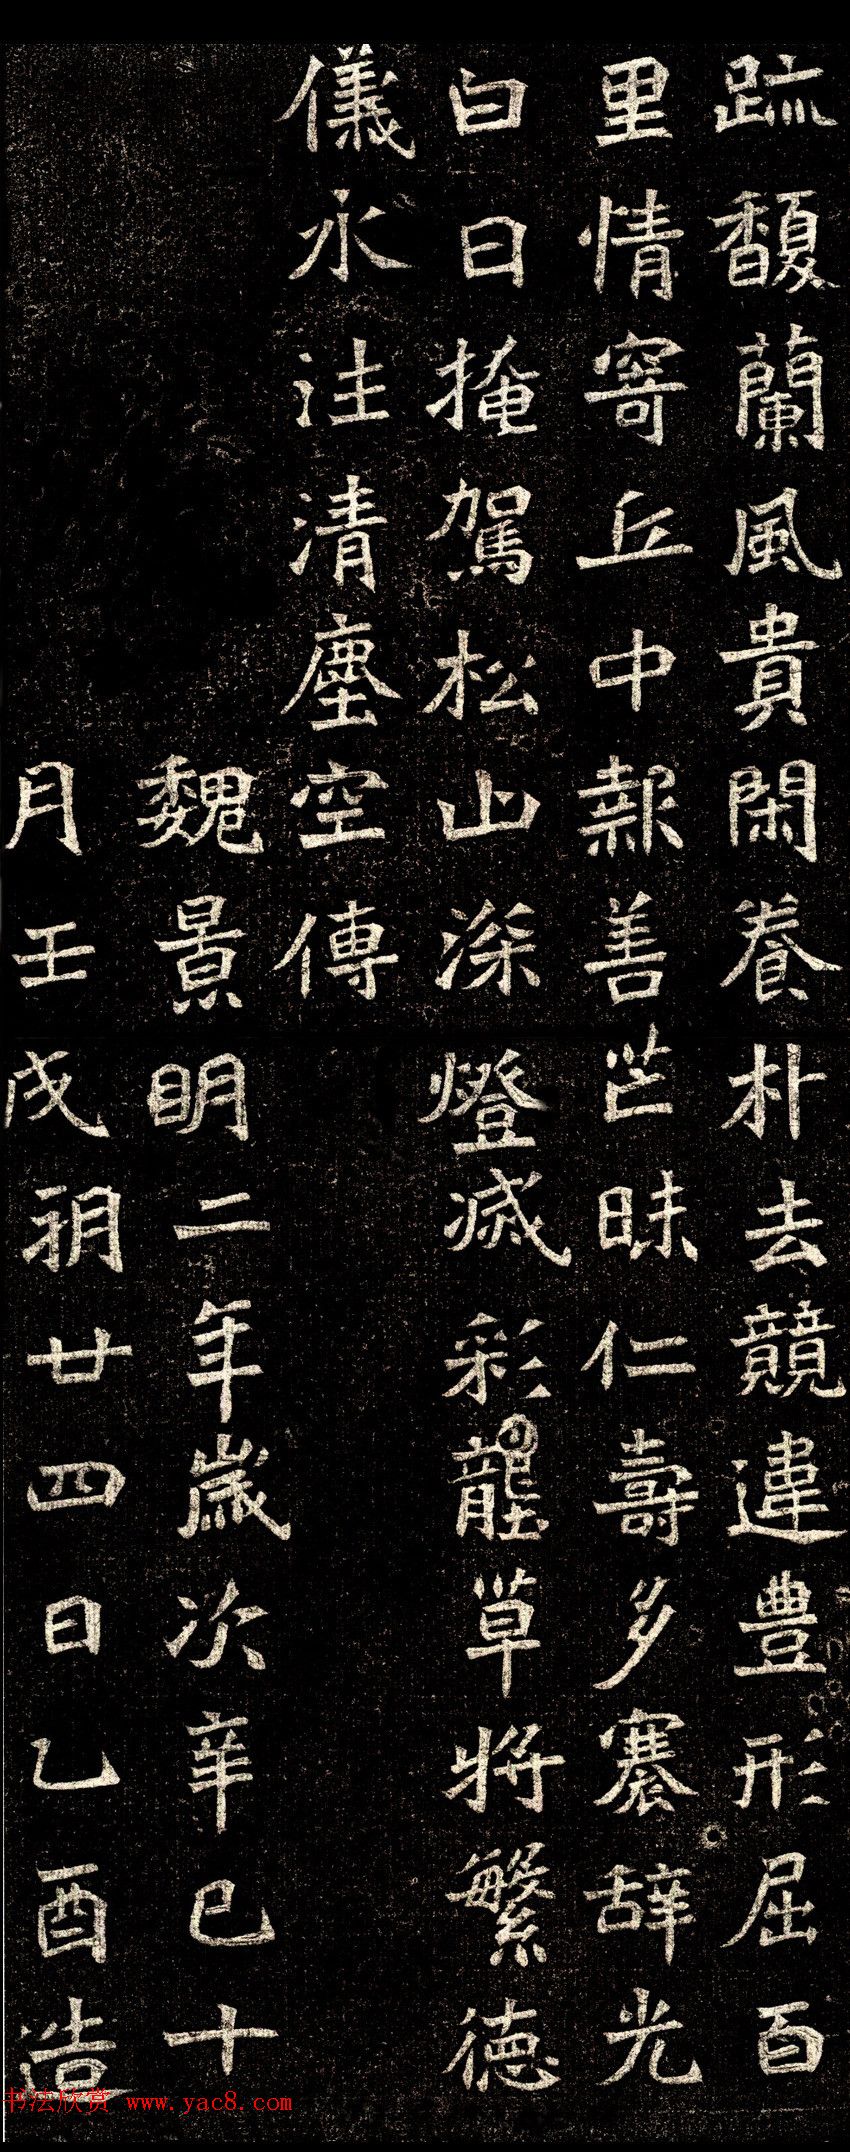 疏馥蘭風貴閑養朴去競違豊形屈百
里情寄丘中報善芒昧仁壽多褰辞光
白日掩駕松山深燈滅彩壟草將繁德
儀永注清塵空傳
魏景明二年歲次辛巳十
月壬戌朔廿四日乙酉造
书法欣赏 www.yac8.com